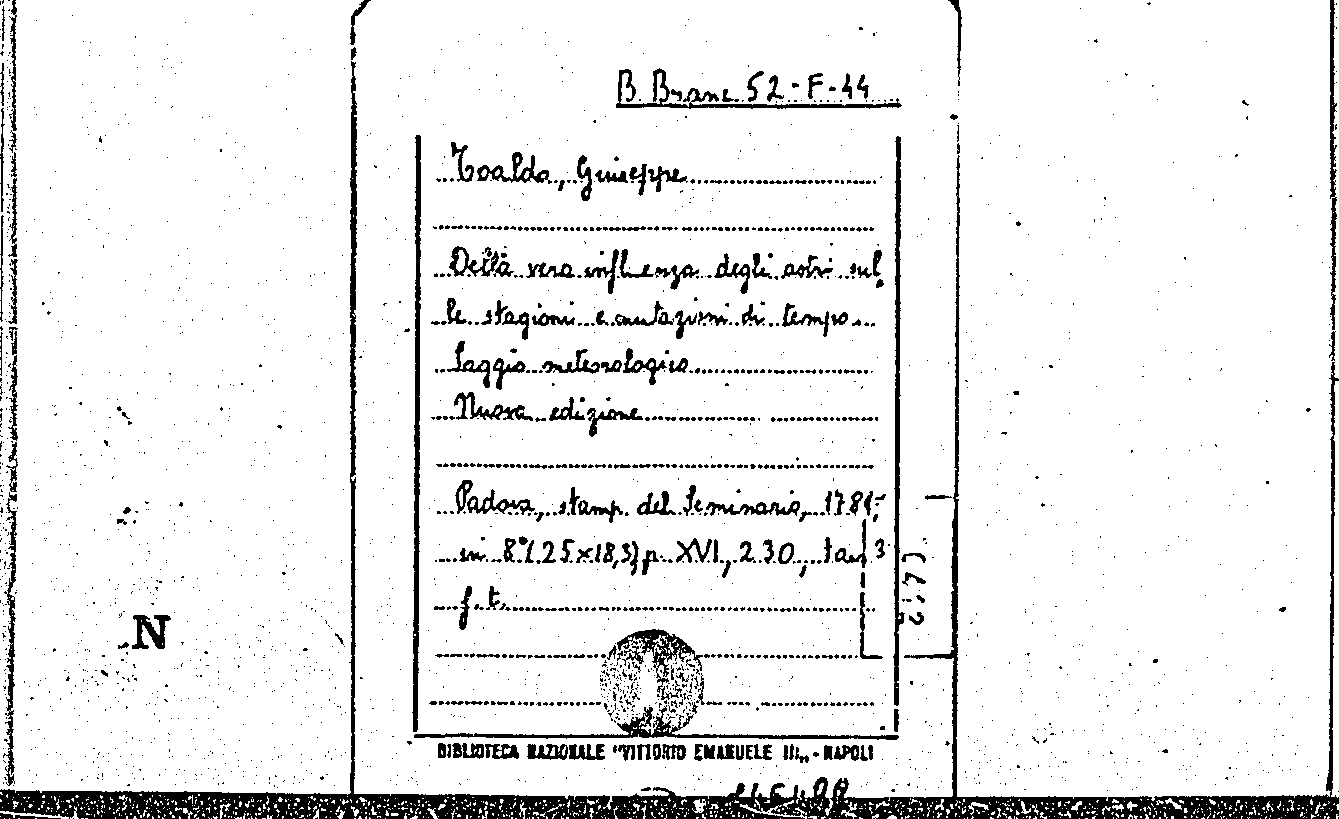 B. Branc. 52-F-44
Toaldo, Giuseppe
Della vera influenza degli astri sul
le stagioni e mutazioni di tempo.
Saggio meteorologico
Nuova edizione
Padova, stamp. del Seminario, 1781;
in 8° (25x18,5) p. XVI, 230, tav. 3
f. t.
N
BIBLIOTECA NAZIONALE "VITTORIO EMANUELE III„ - NAPOLI